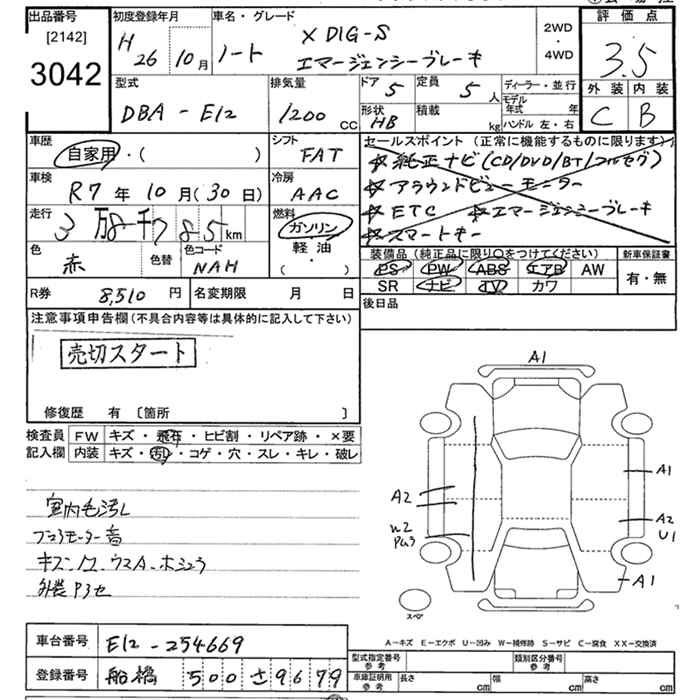 出品番号 初度登録年月 車名・グレード 2WD・4WD 評価点
[2142]
3042 H 26 10月 ノート X DIG-S エマージェンシーブレーキ 3.5
型式 排気量 ドア 5 定員 5人 ディーラー・並行 外装 内装
DBA-E12 1200cc 形状 HB 積載 kg モデル年式 年 ハンドル 左・右 C B
車歴 自家用・( ) シフト FAT セールスポイント(正常に機能するものに限ります)
☆純正ナビ(CD/DVD/BT/フルセグ)
車検 R7年10月(30日) 冷房 AAC ☆アラウンドビューモニター
走行 3万8千785km 燃料 ガソリン 軽油・( ) ☆ETC ☆エマージェンシーブレーキ
☆スマートキー
色 赤 色替 色コード NAH 装備品(純正品に限り○をつけてください) 新車保証書
PS PW ABS エアB AW 有・無
SR ナビ TV カワ
R券 8,510円 名変期限 月 日 後日品
注意事項申告欄(不具合内容等は具体的に記入して下さい)
売切スタート
修復歴 有 〔箇所 〕
検査員 FW キズ・飛石・ヒビ割・リペア跡・×要
記入欄 内装 キズ・汚れ・コゲ・穴・スレ・キレ・破レ
A1
A1
A2 A2
U1
W2
A1
室内毛汚し
スペア
A-キズ E-エクボ U-凹み W-補修跡 S-サビ C-腐食 XX-交換済
車台番号 E12-254669 型式指定番号 参考 類別区分番号 参考
登録番号 船橋 500 さ 9679 車庫証明用 参考 長さ cm 幅 cm 高さ cm